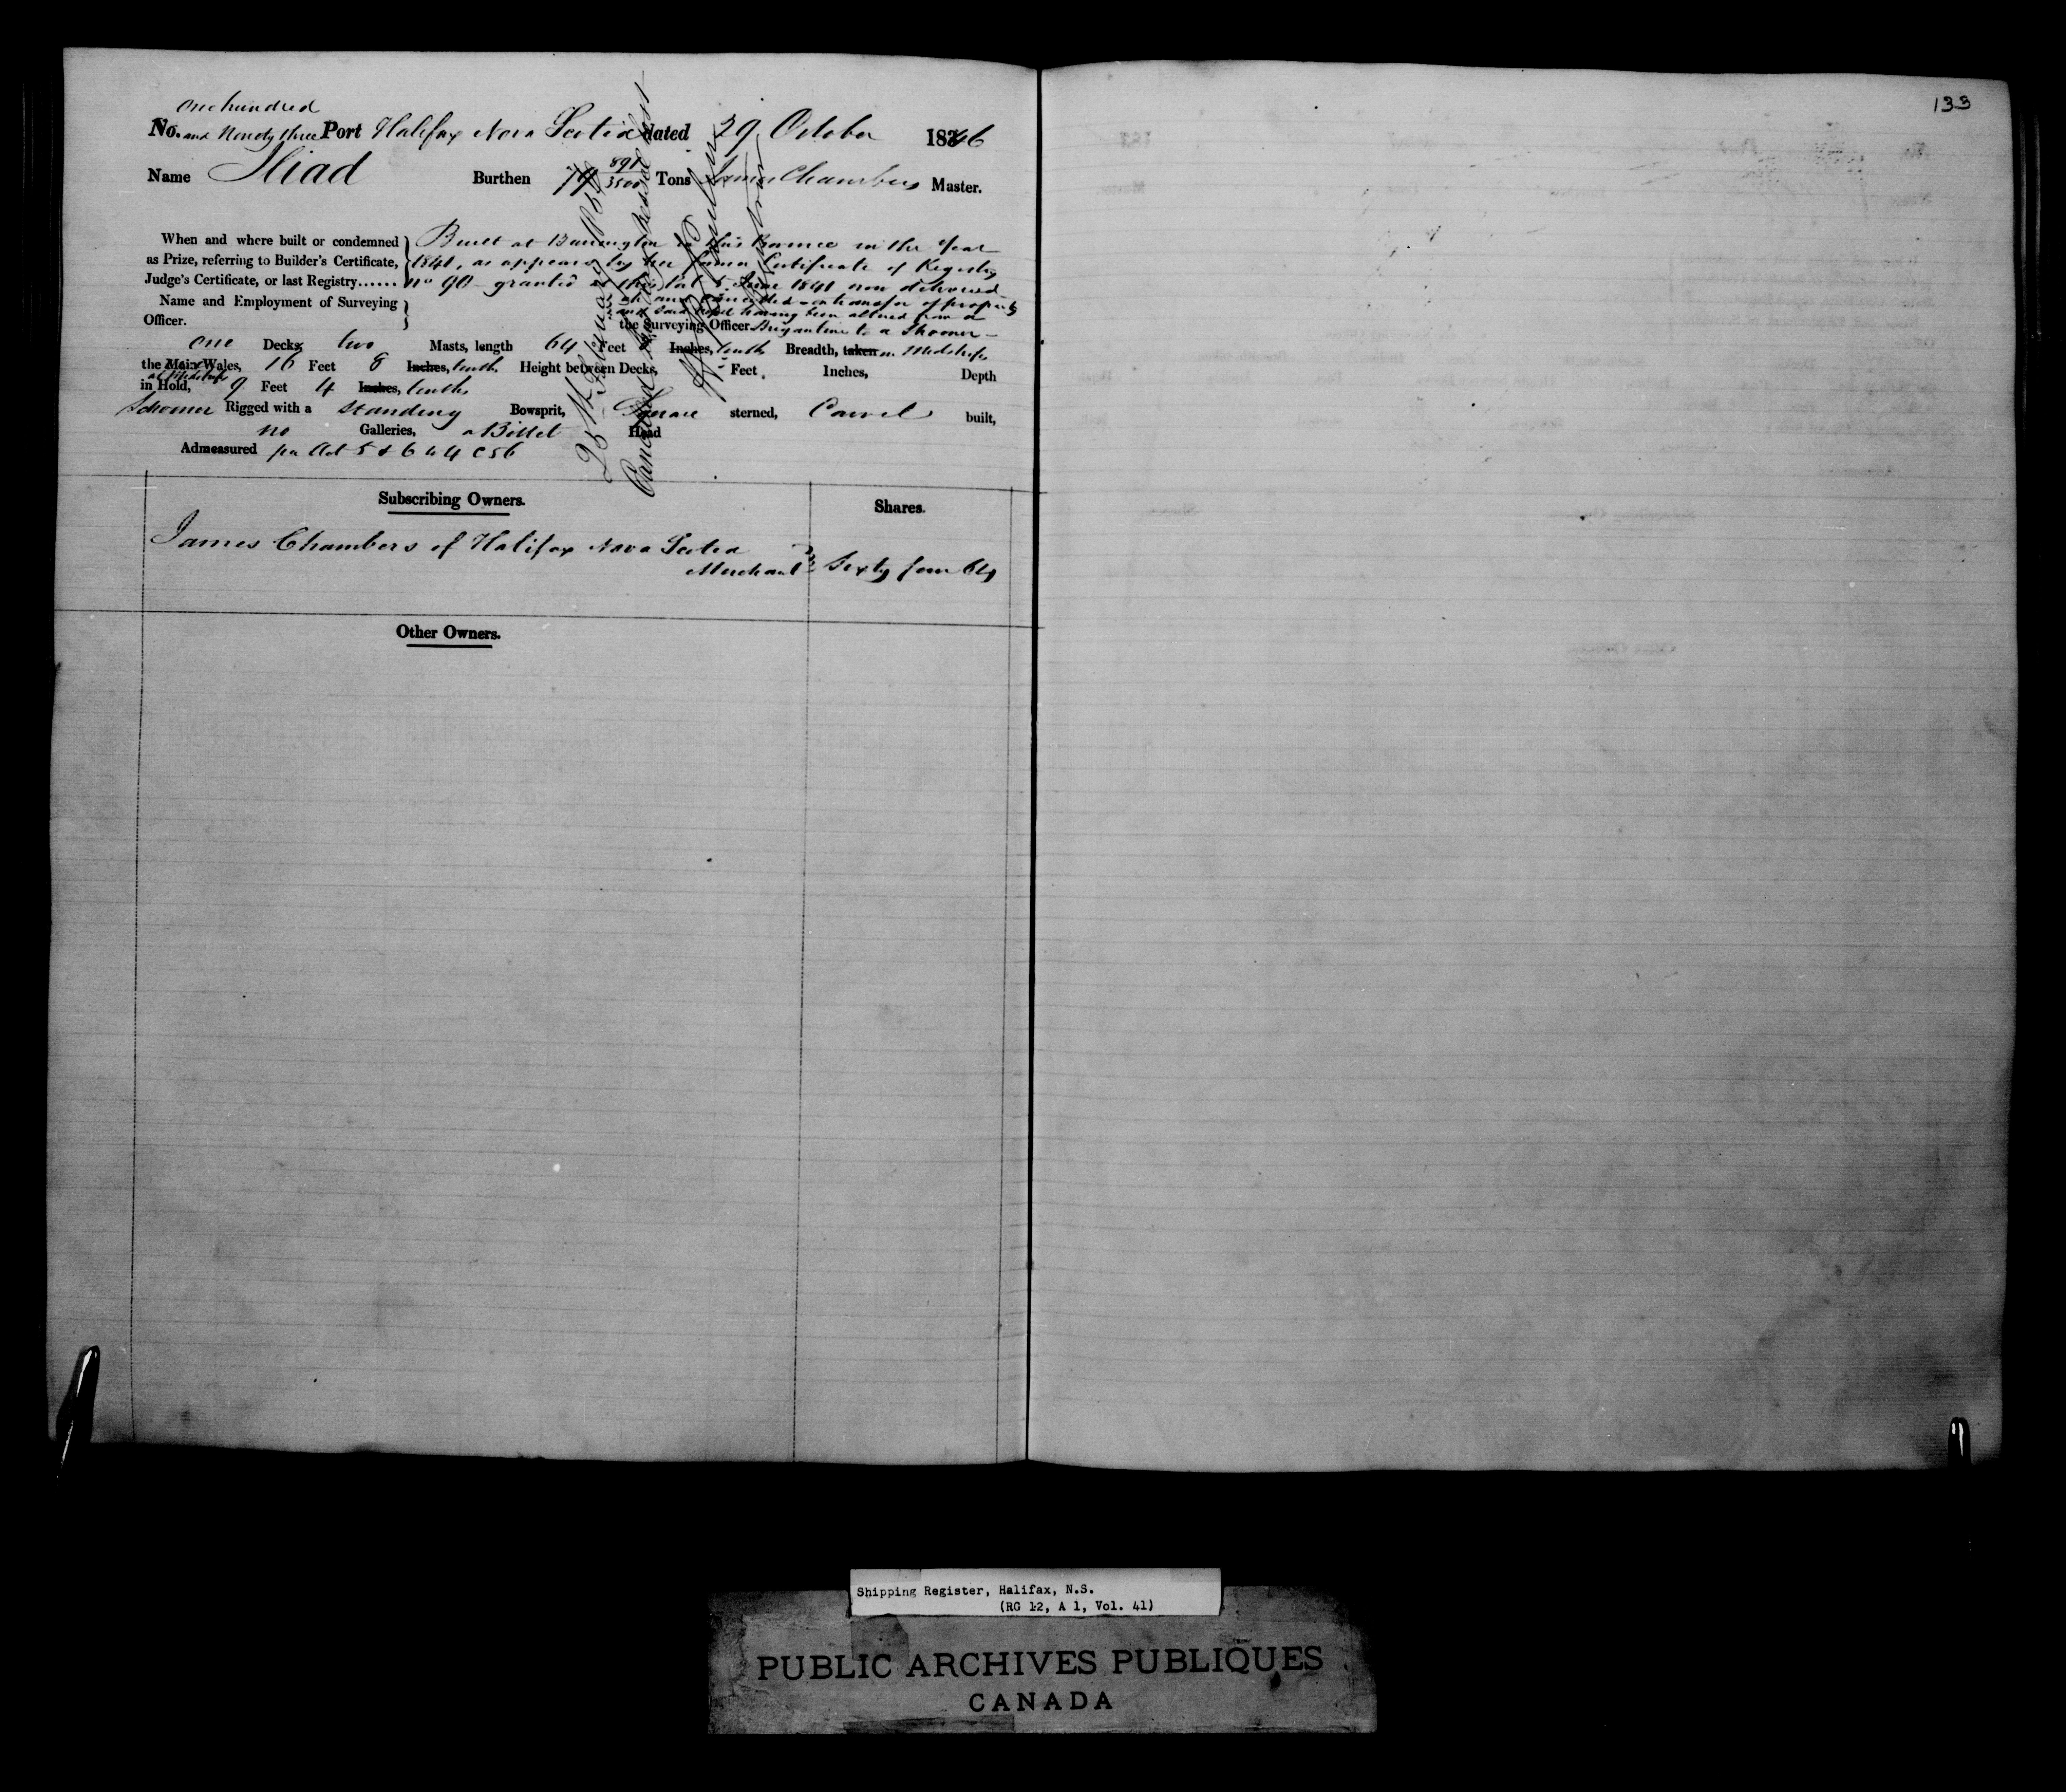 133
One hundred
No. and Ninety three Port Halifax Nova Scotia dated 29 October 1846
Name Iliad Burthen 74 891/3500 Tons James Chambers Master.
When and where built or condemned as Prize, referring to Builder's Certificate, Judge's Certificate, or last Registry......
Built at Barrington in this Province in the Year
1841, as appears by her former Certificate of Registry
No 90 granted at this Port 5 June 1841 now delivered
up and cancelled on transfer of property
and said Vessel having been altered from a
Name and Employment of Surveying Officer.
the Surveying Officer Brigantine to a Schooner
one Decks two Masts, length 64 Feet Inches, tenths Breadth, taken in Midships
the Main Wales, 16 Feet 8 Inches, tenths Height between Decks, Feet, Inches, Depth
at Midships
in Hold, 9 Feet 4 Inches, tenths
Schooner Rigged with a Standing Bowsprit, Square sterned, Carvel built,
no Galleries, a Billet Head
Admeasured per Act 5 & 6 W 4 C 56
Cancelled Vessel lost
25th February
Subscribing Owners.
Shares.
James Chambers of Halifax Nova Scotia
Merchant Sixty four 64
Other Owners.
Shipping Register, Halifax, N.S.
(RG 12, A 1, Vol. 41)
PUBLIC ARCHIVES PUBLIQUES
CANADA